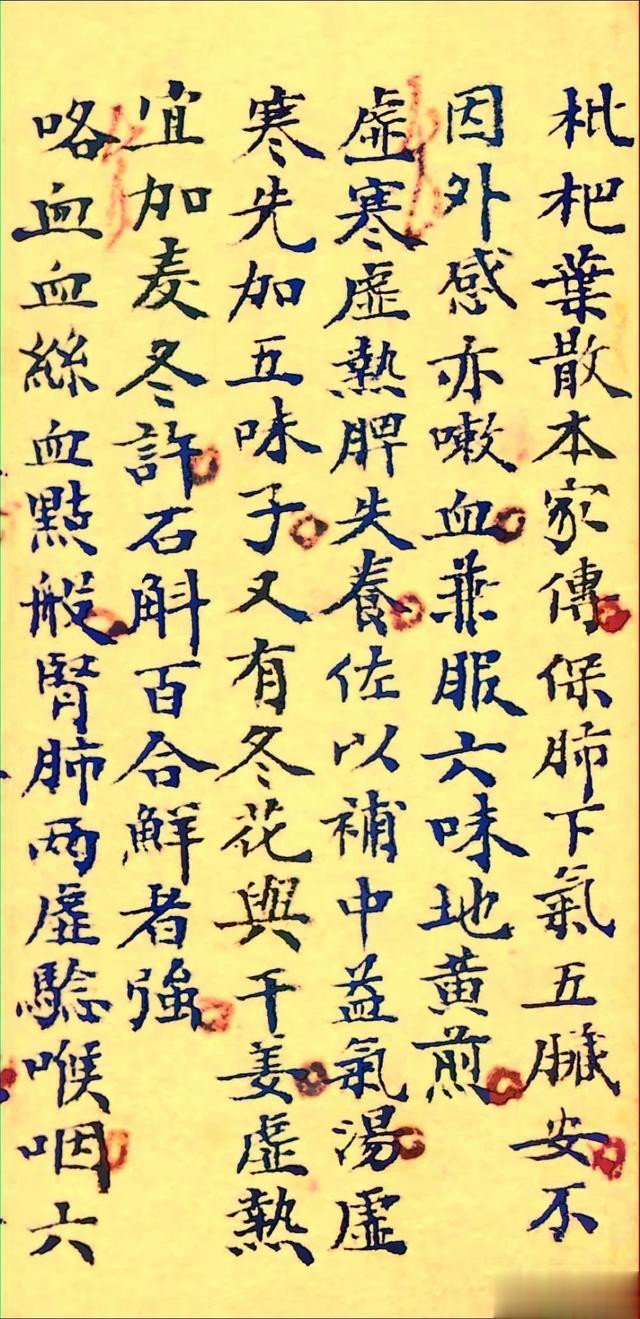 枇杷葉散本家傳保肺下氣五臟安不
因外感亦嗽血兼服六味地黄煎
虛寒虛熱脾失養佐以補中益氣湯虛
寒先加五味子又有冬花與干姜虛熱
宜加麦冬許石斛百合鮮者強
咯血血絲血點般腎肺兩虛驗喉咽六